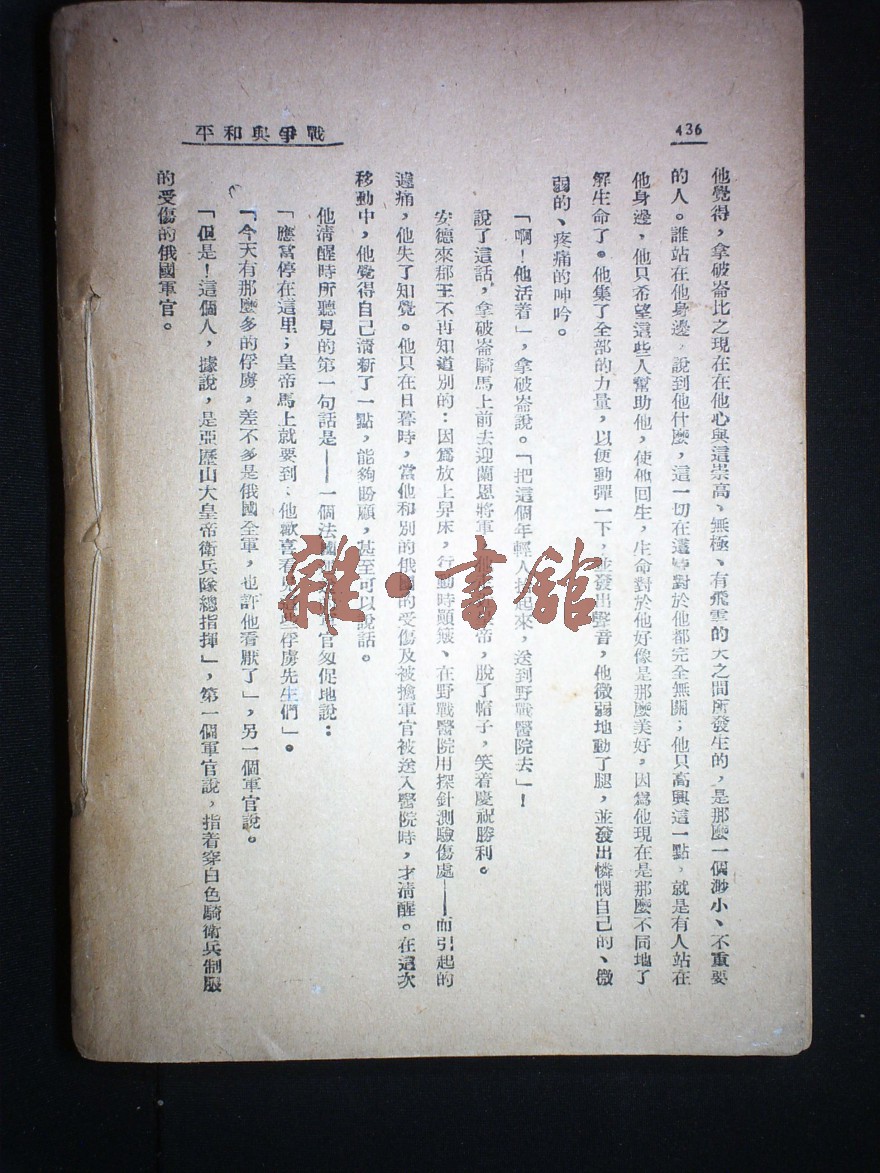 436
平和與爭戰
他覺得，拿破崙比之現在在他心與這崇高、無極、有飛雲的天之間所發生的，是那麼一個渺小、不重要
的人。誰站在他身邊，說到他什麼，這一切在這時對於他都完全無關；他只高興這一點，就是有人站在
他身邊，他只希望這些人幫助他，使他回生，生命對於他好像是那麼美好，因爲他現在是那麼不同地了
解生命了。他集了全部的力量，以便動彈一下，並發出聲音，他微弱地動了腿，並發出憐憫自己的、微
弱的、疼痛的呻吟。
「啊！他活着」，拿破崙說。「把這個年輕人抬起來，送到野戰醫院去」！
說了這話，拿破崙騎馬上前去迎蘭恩將軍，帝，脫了帽子，笑着慶祝勝利。
安德來郡王不再知道別的：因爲放上昇床，行動時顛簸、在野戰醫院用探針測驗傷處——而引起的
遽痛，他失了知覺。他只在日暮時，當他和別的俄國的受傷及被擒軍官被送入醫院時，才清醒。在這次
移動中，他覺得自己清新了一點，能夠盼顧，甚至可以說話。
他清醒時所聽見的第一句話是——一個法國官匆促地說：
「應當停在這里；皇帝馬上就要到；他歡喜看見這些俘虜先生們」。
「今天有那麼多的俘虜，差不多是俄國全軍，也許他看厭了」，另一個軍官說。
「但是！這個人，據說，是亞歷山大皇帝衛兵隊總指揮」，第一個軍官說，指着穿白色騎衛兵制服
的受傷的俄國軍官。
雜·書館